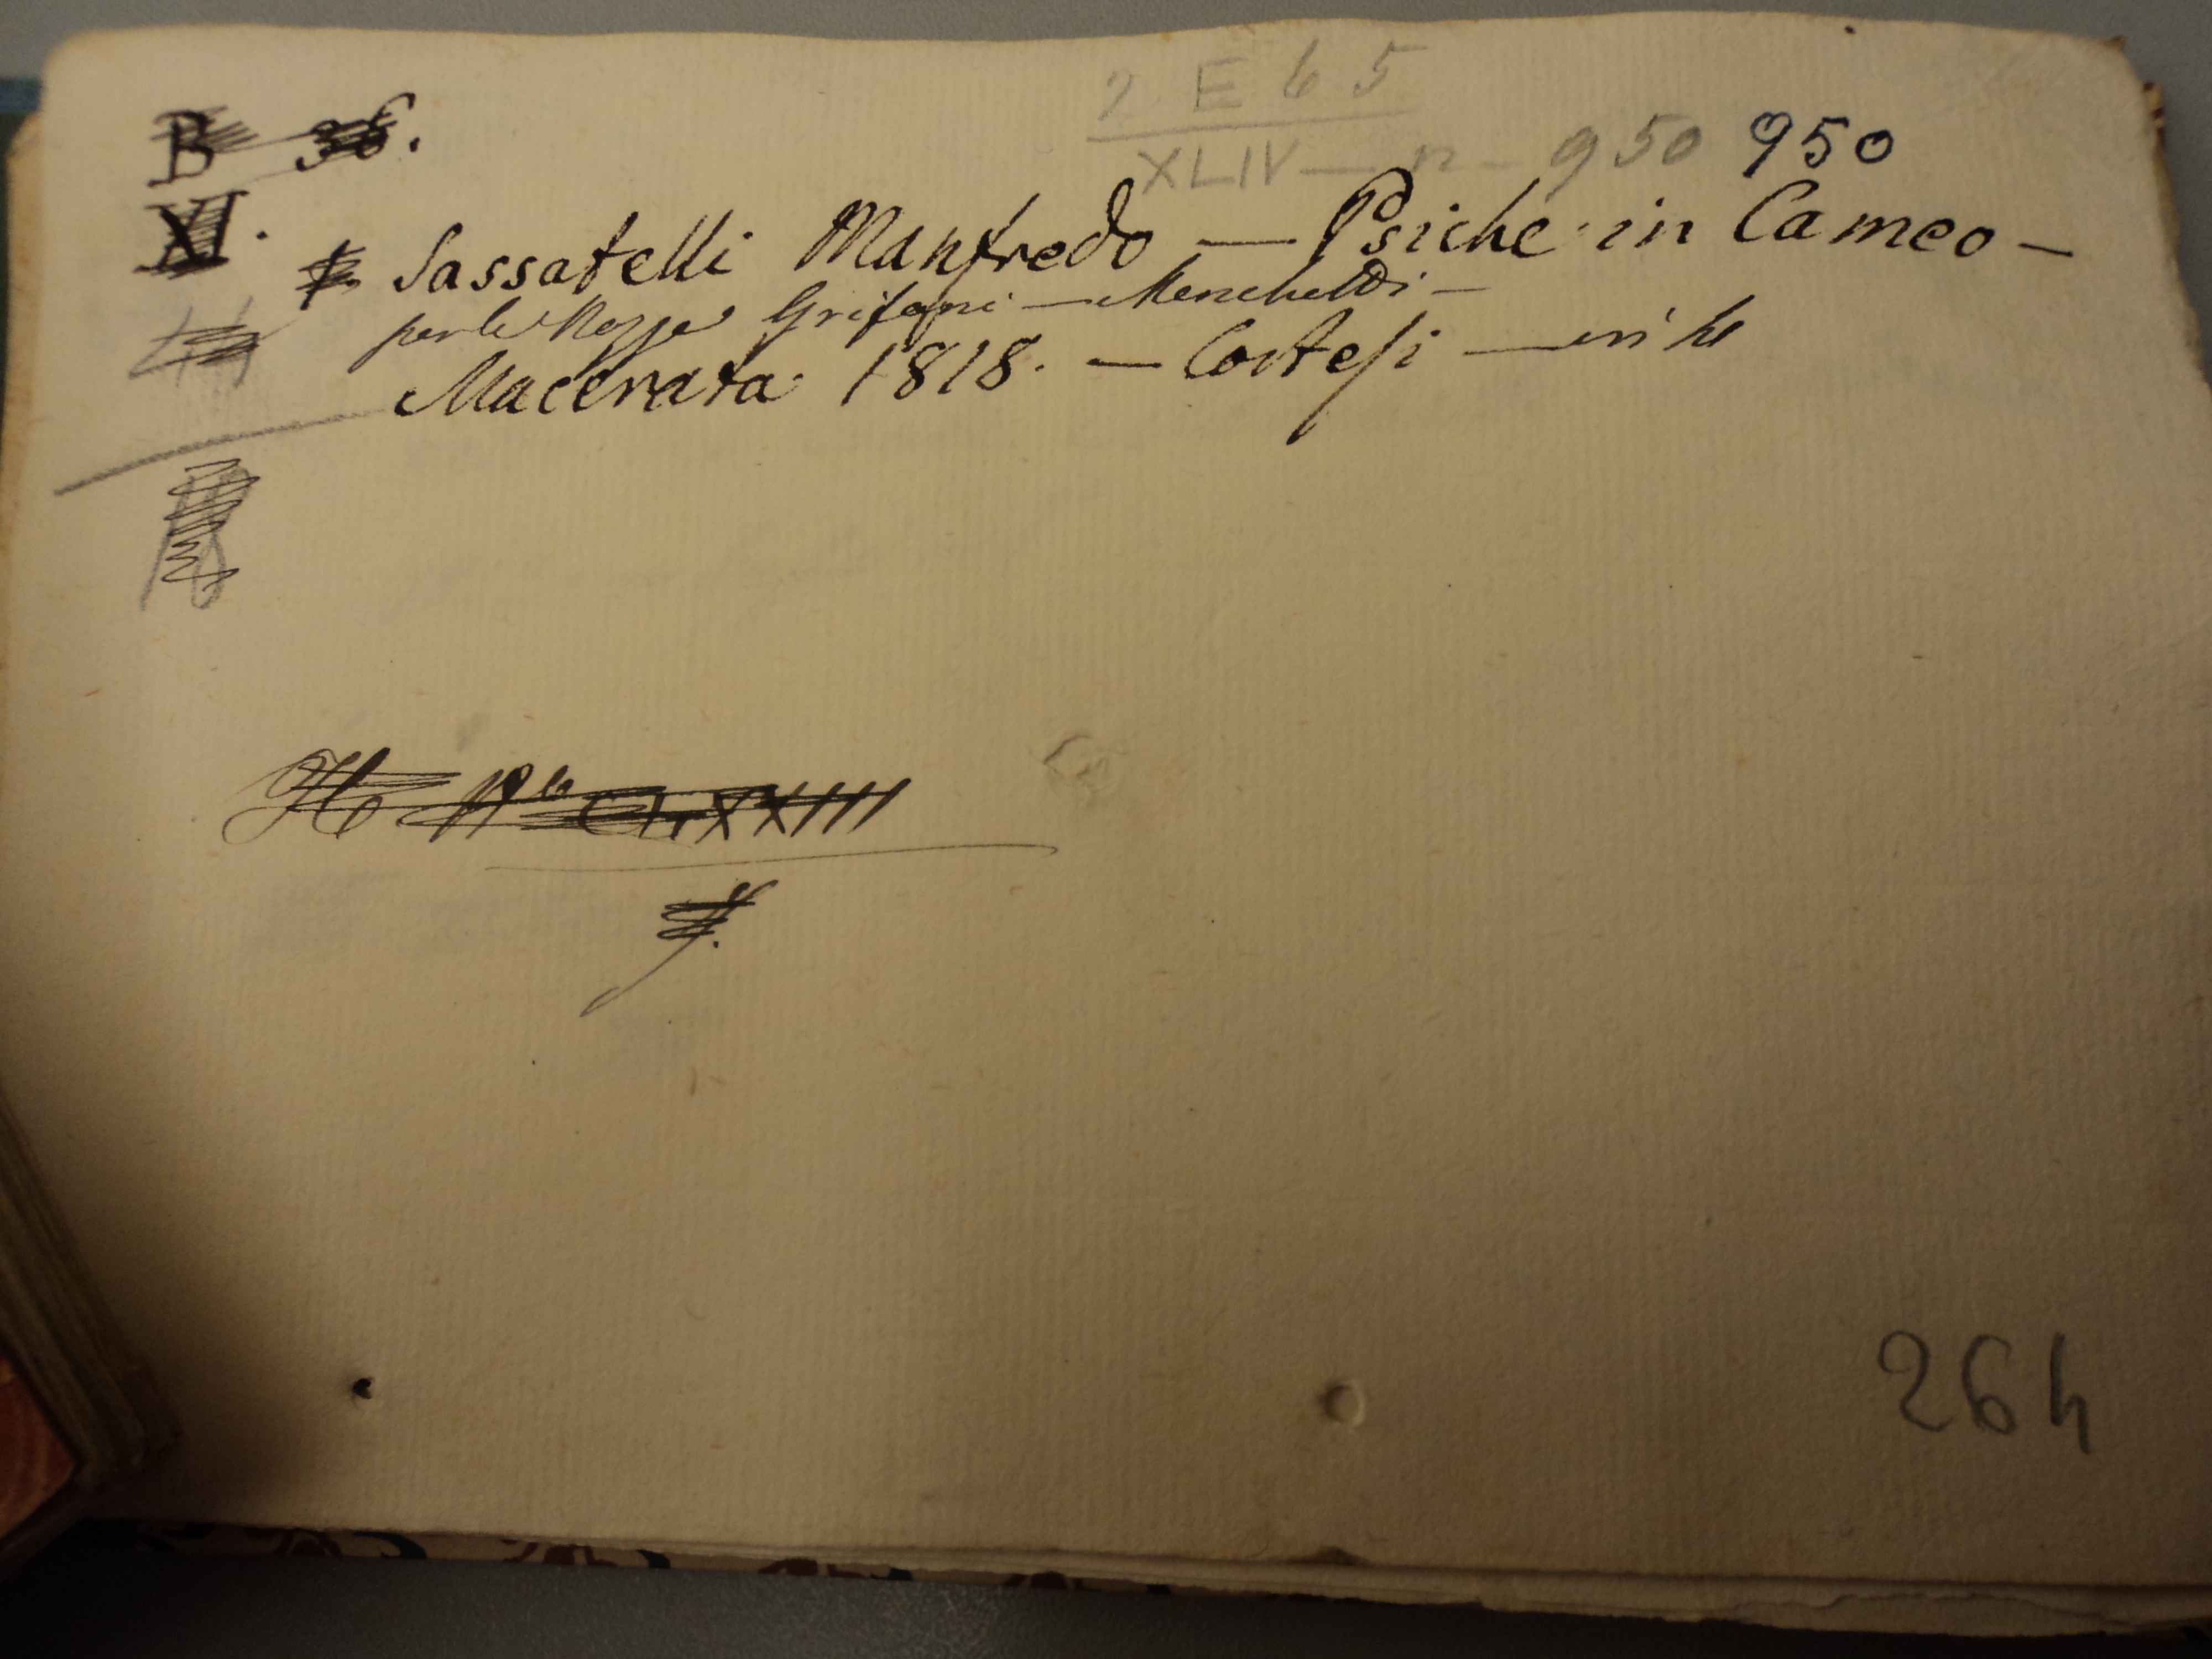 2 E 65
B 36.
XLIV — n - 950 950
XI.
Sassatelli Manfredo — Psiche in Cameo —
per le Nozze Grifoni — Menchetti —
Macerata 1818. — Cortesi — in
XXIII
264